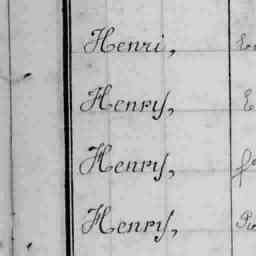 Henri,
Henry,
Henry,
Henry,